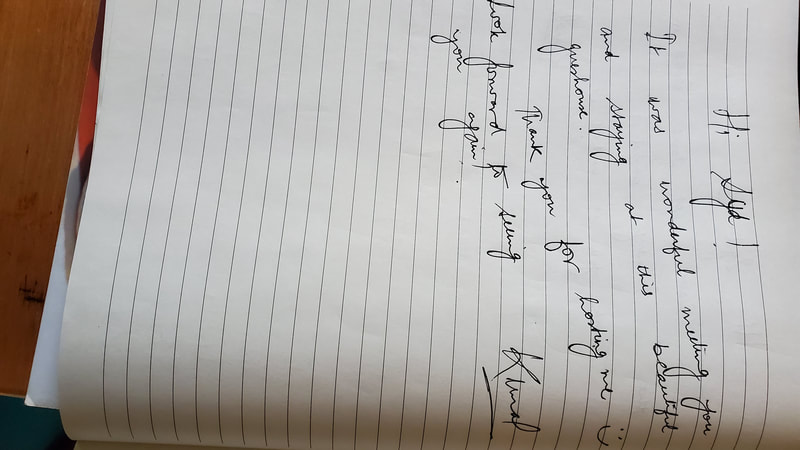 Hi Syd!
It was wonderful meeting you
and staying at this beautiful
gueshouse.
Thank you for hosting me :)
Look forward to seeing
you again!
Kunal